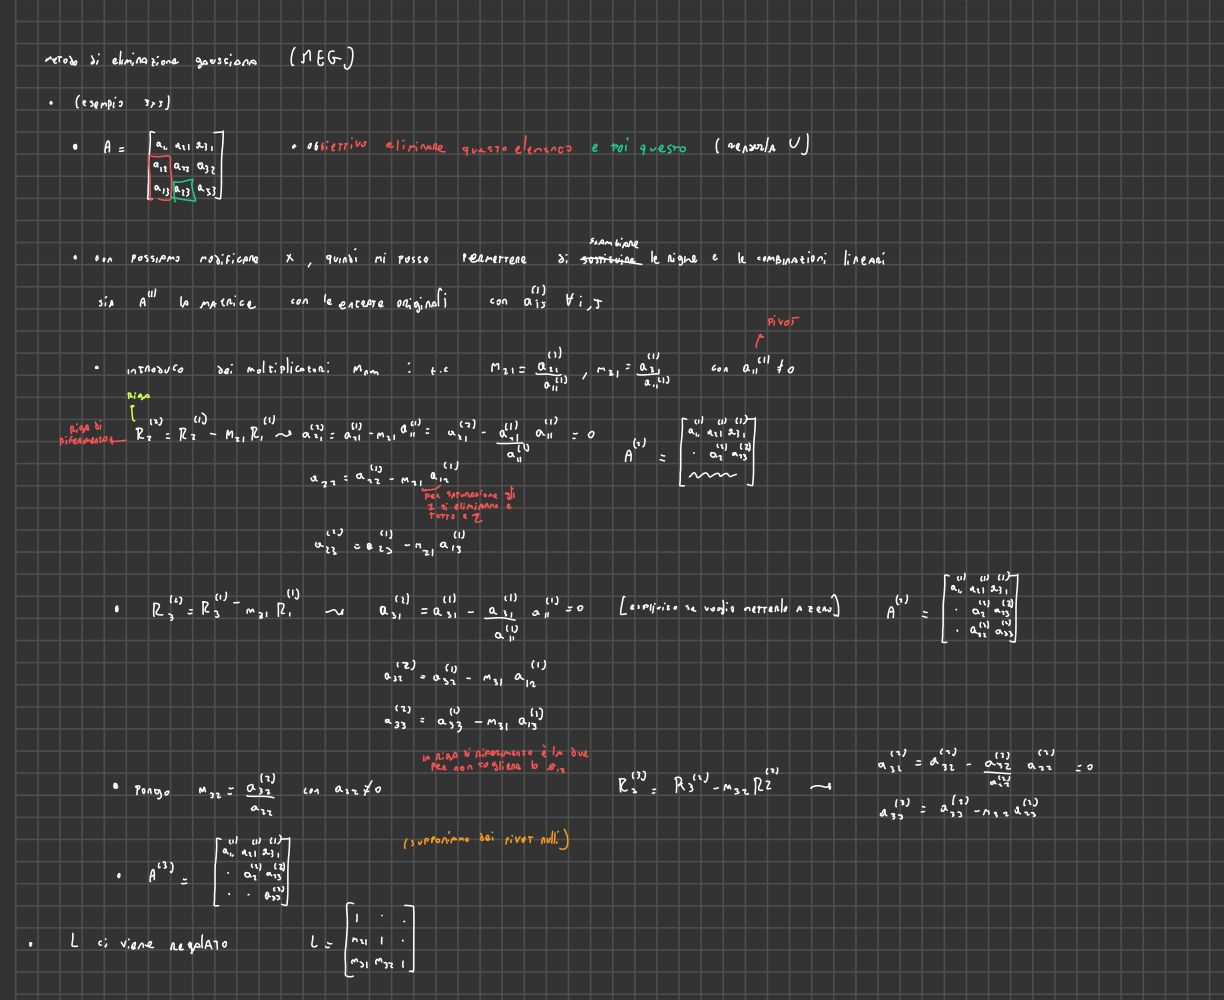 metodo di eliminazione gaussiana (MEG)
• (esempio 3x3)
• A = [a₁₁ a₂₁ a₃₁
a₁₂ a₂₂ a₃₂
a₁₃ a₂₃ a₃₃]
• obiettivo eliminare questo elemento e poi questo (renderla U)
• non possiamo modificare x, quindi mi posso permettere di ~~sostituire~~ scambiare le righe e le combinazioni lineari
sia A⁽¹⁾ la matrice con le entrate originali con aᵢⱼ⁽¹⁾ ∀ i,j
pivot
• introduco dei moltiplicatori mₙₘ : t.c m₂₁ = a₂₁⁽¹⁾/a₁₁⁽¹⁾ , m₃₁ = a₃₁⁽¹⁾/a₁₁⁽¹⁾ con a₁₁⁽¹⁾ ≠ 0
Riga
riga di riferimento
R₂⁽²⁾ = R₂⁽¹⁾ - m₂₁R₁⁽¹⁾ ~ a₂₁⁽²⁾ = a₂₁⁽¹⁾ - m₂₁ a₁₁⁽¹⁾ = a₂₁⁽¹⁾ - a₂₁⁽¹⁾/a₁₁⁽¹⁾ a₁₁⁽¹⁾ = 0
A⁽²⁾ = [a₁₁⁽¹⁾ a₂₁⁽¹⁾ a₃₁⁽¹⁾
· a₂⁽²⁾ a₂₃⁽²⁾]
a₂₂ = a₂₂⁽¹⁾ - m₂₁ a₁₂⁽¹⁾
per saturazione gli
si eliminano e
tutto è
a₂₃⁽²⁾ = a₂₃⁽¹⁾ - m₂₁ a₁₃⁽¹⁾
• R₃⁽²⁾ = R₃⁽¹⁾ - m₃₁ R₁⁽¹⁾ ~ a₃₁⁽²⁾ = a₃₁⁽¹⁾ - a₃₁⁽¹⁾/a₁₁⁽¹⁾ a₁₁⁽¹⁾ = 0 [esplicito se voglio metterlo a zero]
A⁽²⁾ = [a₁₁⁽¹⁾ a₂₁⁽¹⁾ a₃₁⁽¹⁾
· a₂⁽²⁾ a₂₃⁽²⁾
· a₃₂⁽²⁾ a₃₃⁽²⁾]
a₃₂⁽²⁾ = a₃₂⁽¹⁾ - m₃₁ a₁₂⁽¹⁾
a₃₃⁽²⁾ = a₃₃⁽¹⁾ - m₃₁ a₁₃⁽¹⁾
la riga di riferimento è la due
per non togliere lo
• Pongo m₃₂ = a₃₂⁽²⁾/a₂₂ con a₂₂ ≠ 0
R₃⁽³⁾ = R₃⁽²⁾ - m₃₂ R₂⁽²⁾ → a₃₂⁽²⁾ = a₃₂⁽²⁾ - a₃₂⁽²⁾/a₂₂⁽²⁾ a₂₂⁽²⁾ = 0
a₃₃⁽³⁾ = a₃₃⁽²⁾ - m₃₂ a₂₃⁽²⁾
(supponiamo dei pivot nulli)
• A⁽³⁾ = [a₁₁⁽¹⁾ a₂₁⁽¹⁾ a₃₁⁽¹⁾
· a₂⁽²⁾ a₂₃⁽²⁾
· · a₃₃⁽³⁾]
• L ci viene regalato L = [1 · ·
m₂₁ 1 ·
m₃₁ m₃₂ 1]